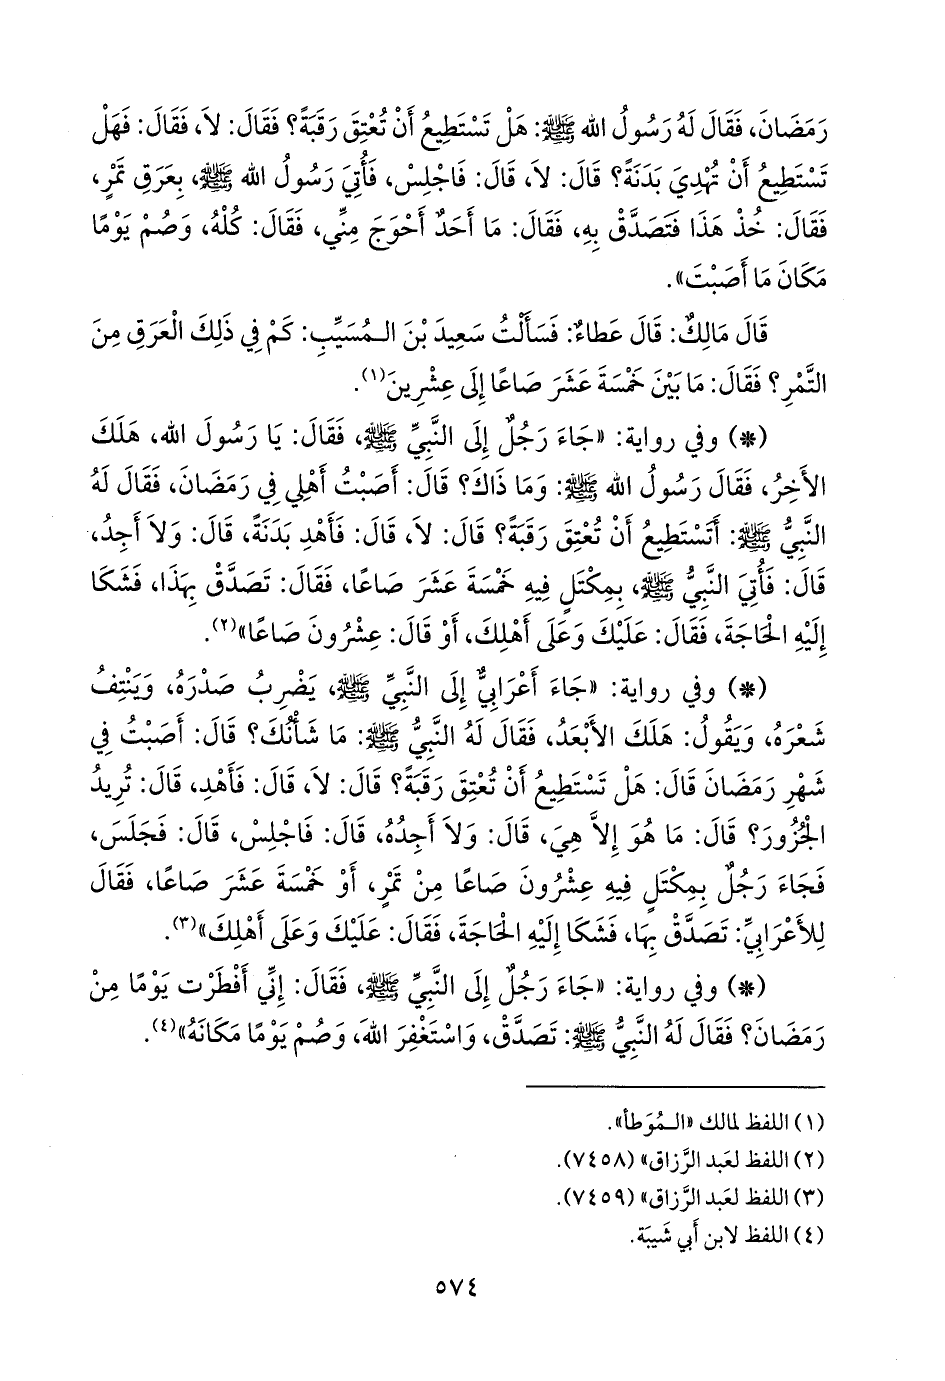 رَمَضَانَ، فَقَالَ لَهُ رَسُولُ الله ﷺ: هَلْ تَسْتَطِيعُ أَنْ تُعْتِقَ رَقَبَةً؟ فَقَالَ: لاَ، فَقَالَ: فَهَلْ
تَسْتَطِيعُ أَنْ تُهْدِيَ بَدَنَةً؟ قَالَ: لاَ، قَالَ: فَاجْلِسْ، فَأُتِيَ رَسُولُ الله ﷺ، بِعَرَقِ تَمْرٍ،
فَقَالَ: خُذْ هَذَا فَتَصَدَّقْ بِهِ، فَقَالَ: مَا أَحَدٌ أَحْوَجَ مِنِّي، فَقَالَ: كُلْهُ، وَصُمْ يَوْمًا
مَكَانَ مَا أَصَبْتَ».
قَالَ مَالِكٌ: قَالَ عَطَاءٌ: فَسَأَلْتُ سَعِيدَ بْنَ الـمُسَيِّبِ: كَمْ فِي ذَلِكَ الْعَرَقِ مِنَ
التَّمْرِ؟ فَقَالَ: مَا بَيْنَ خَمْسَةَ عَشَرَ صَاعًا إِلَى عِشْرِينَ(١).
(*) وفي رواية: «جَاءَ رَجُلٌ إِلَى النَّبِيِّ ﷺ، فَقَالَ: يَا رَسُولَ الله، هَلَكَ
الأَخِرُ، فَقَالَ رَسُولُ الله ﷺ: وَمَا ذَاكَ؟ قَالَ: أَصَبْتُ أَهْلِي فِي رَمَضَانَ، فَقَالَ لَهُ
النَّبِيُّ ﷺ: أَتَسْتَطِيعُ أَنْ تُعْتِقَ رَقَبَةً؟ قَالَ: لاَ، قَالَ: فَأَهْدِ بَدَنَةً، قَالَ: وَلاَ أَجِدُ،
قَالَ: فَأُتِيَ النَّبِيُّ ﷺ، بِمِكْتَلٍ فِيهِ خَمْسَةَ عَشَرَ صَاعًا، فَقَالَ: تَصَدَّقْ بِهَذَا، فَشَكَا
إِلَيْهِ الْحَاجَةَ، فَقَالَ: عَلَيْكَ وَعَلَى أَهْلِكَ، أَوْ قَالَ: عِشْرُونَ صَاعًا»(٢).
(*) وفي رواية: «جَاءَ أَعْرَابِيٌّ إِلَى النَّبِيِّ ﷺ، يَضْرِبُ صَدْرَهُ، وَيَنْتِفُ
شَعْرَهُ، وَيَقُولُ: هَلَكَ الأَبْعَدُ، فَقَالَ لَهُ النَّبِيُّ ﷺ: مَا شَأْنُكَ؟ قَالَ: أَصَبْتُ فِي
شَهْرِ رَمَضَانَ قَالَ: هَلْ تَسْتَطِيعُ أَنْ تُعْتِقَ رَقَبَةً؟ قَالَ: لاَ، قَالَ: فَأَهْدِ، قَالَ: تُرِيدُ
الْجَزُورَ؟ قَالَ: مَا هُوَ إِلاَّ هِيَ، قَالَ: وَلاَ أَجِدُهُ، قَالَ: فَاجْلِسْ، قَالَ: فَجَلَسَ،
فَجَاءَ رَجُلٌ بِمِكْتَلٍ فِيهِ عِشْرُونَ صَاعًا مِنْ تَمْرٍ، أَوْ خَمْسَةَ عَشَرَ صَاعًا، فَقَالَ
لِلأَعْرَابِيِّ: تَصَدَّقْ بِهَا، فَشَكَا إِلَيْهِ الْحَاجَةَ، فَقَالَ: عَلَيْكَ وَعَلَى أَهْلِكَ»(٣).
(*) وفي رواية: «جَاءَ رَجُلٌ إِلَى النَّبِيِّ ﷺ، فَقَالَ: إِنِّي أَفْطَرْت يَوْمًا مِنْ
رَمَضَانَ؟ فَقَالَ لَهُ النَّبِيُّ ﷺ: تَصَدَّقْ، وَاسْتَغْفِرَ اللهَ، وَصُمْ يَوْمًا مَكَانَهُ»(٤).
(١) اللفظ لمالك «الـمُوَطأ».
(٢) اللفظ لعَبد الرَّزاق» (٧٤٥٨).
(٣) اللفظ لعَبد الرَّزاق» (٧٤٥٩).
(٤) اللفظ لابن أَبي شَيبَة.
٥٧٤